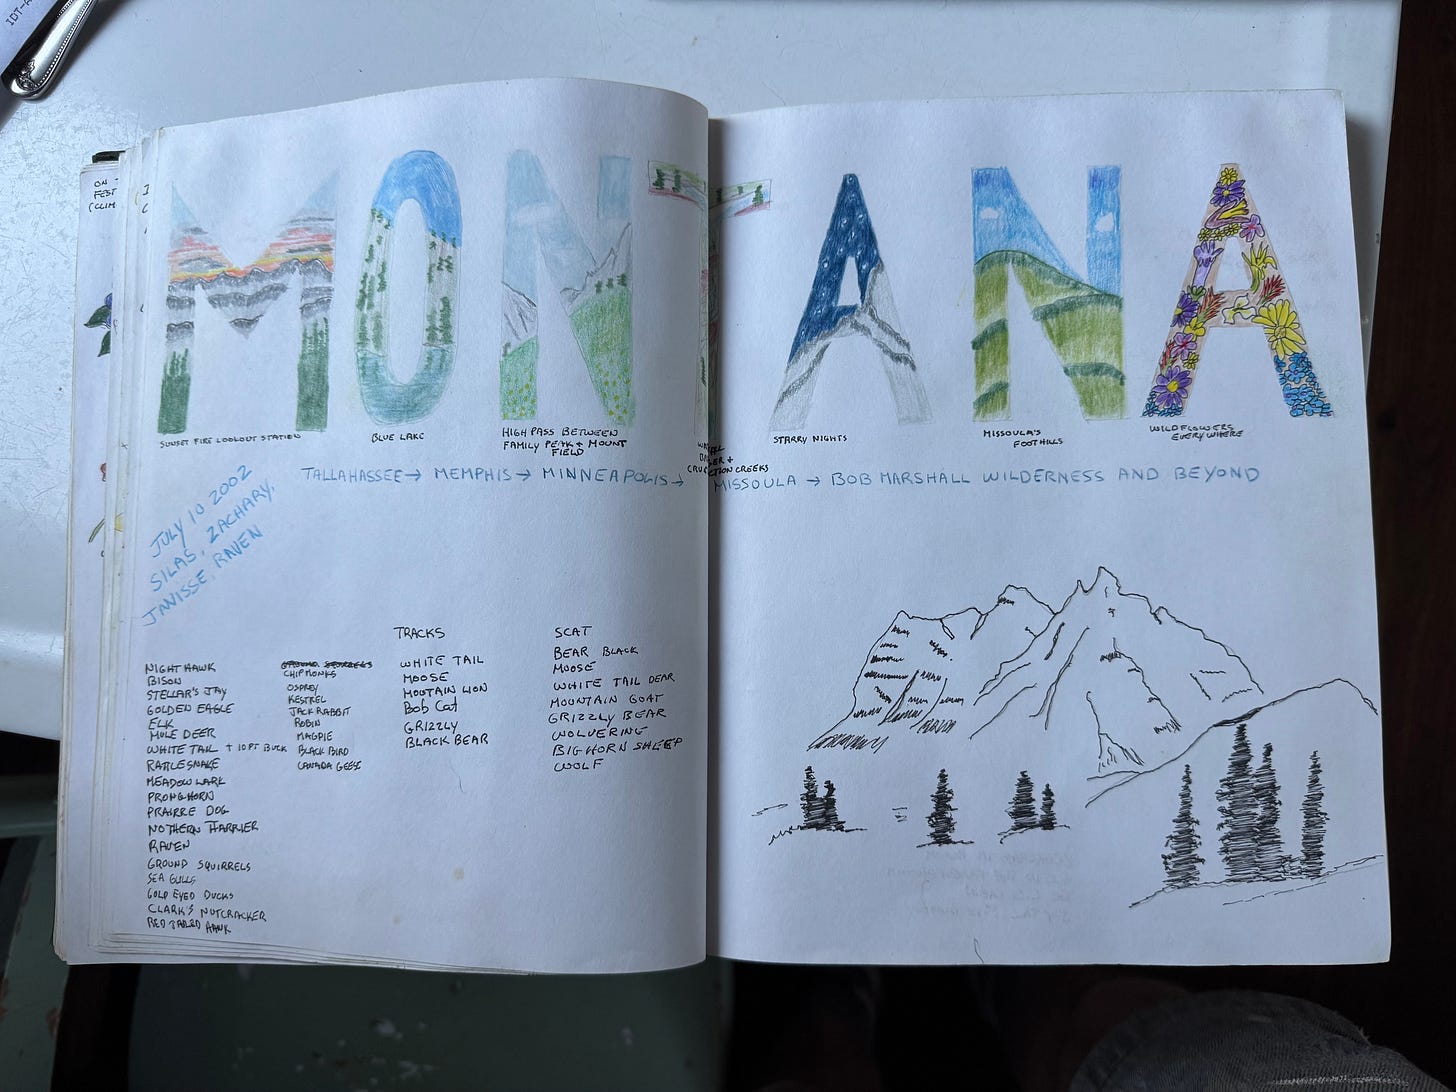 IDT-
ON
FEST
(CLIM
MONTANA
SUNSET FIRE LOOKOUT STATION
BLUE LAKE
HIGH PASS BETWEEN
FAMILY PEAK + MOUNT
FIELD
CREEKS
STARRY NIGHTS
MISSOULA'S
FOOTHILLS
WILDFLOWERS
EVERYWHERE
TALLAHASSEE → MEMPHIS → MINNEAPOLIS → MISSOULA → BOB MARSHALL WILDERNESS AND BEYOND
JULY 10 2002
SILAS, ZACHARY,
JANISSE, RAVEN
NIGHT HAWK
BISON
STELLAR'S JAY
GOLDEN EAGLE
ELK
MULE DEER
WHITE TAIL + 10 PT BUCK
RATTLESNAKE
MEADOW LARK
PRONGHORN
PRAIRRE DOG
NOTHERN HARRIER
RAVEN
GROUND SQUIRRELS
SEA GULLS
GOLD EYED DUCKS
CLARK'S NUTCRACKER
RED TAILED HAWK
CHIPMONKS
OSPREY
KESTREL
JACK RABBIT
ROBIN
MAGPIE
BLACK BIRD
CANADA GEESE
TRACKS
WHITE TAIL
MOOSE
MOOTAIN LION
Bob Cat
GRIZZLY
BLACK BEAR
SCAT
BEAR BLACK
MOOSE
WHITE TAIL DEAR
MOUNTAIN GOAT
GRIZZLY BEAR
WOLVERINE
BIG HORN SHEEP
WOLF